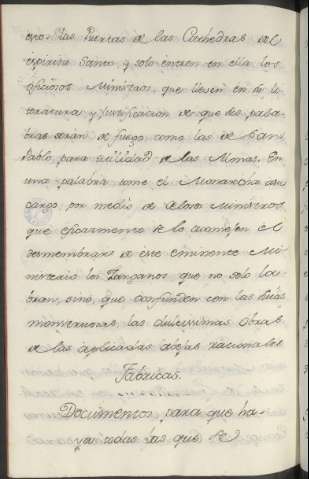 Las Puertas de las Cathedras del
Espiritu Santo y solo entren en ella los
Oficiosos Ministros, que lleven en su li
teratura y justificacion de que sus pala
bras seran de fuego como las de San
Pablo, para utilidad de las Almas. En
una palabra tome el Monarcha a su
cargo por medio de Celosos Ministros
que eficazmente se lo aconsejen el
desmembrar de este eminente Mi
nisterio los Zanganos que no solo la
bran, sino, que confunden con las
monstruosas, las dulcissimas obras
de las aplicadas abejas racionales
Fabricas.
Documentos para que ha
ya todas las que se